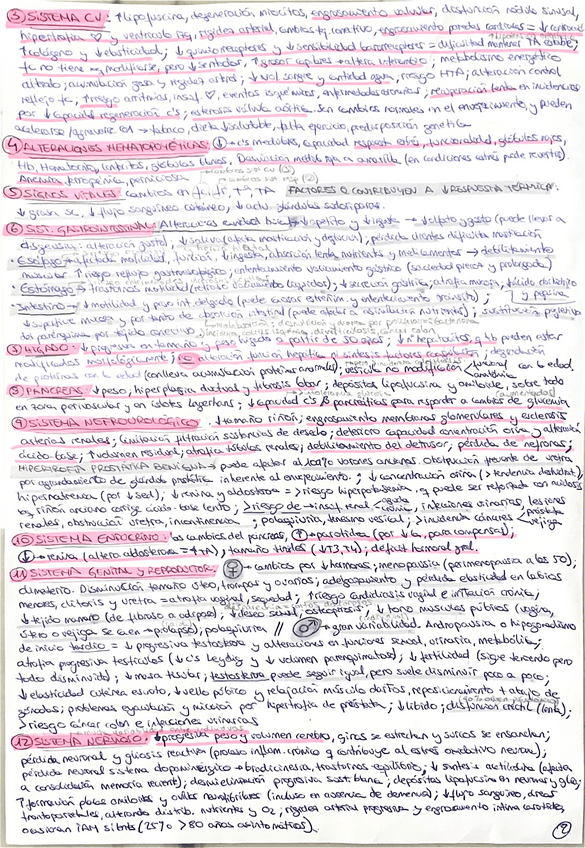 ③ SISTEMA CV: ↑lipofuscina, degeneración miocitos, engrosamiento valvular, disfunción nódulo sinusal,
hipertrofia ♡ y ventrículo izq, rigidez arterial, cambios tej. conectivo, engrosamiento paredes cardíacas =
↑colágeno y ↓elasticidad; ↓quimiorreceptores y ↓sensibilidad barorreceptores = dificultad mantener TA estable;
fc no tiene modificarse, pero sí enlentecer, ↑grosor capilares = altera intercambio; metabolismo energético
alterado; acumulación grasa y rigidez arterial; ↓vol sangre y cantidad agua, riesgo HTA; alteración control
reflejo fc; ↑riesgo arritmias, insuf. ♡, eventos isquémicos, enfermedades coronarias; recuperación lenta en incidencias
por ↓capacidad regeneración c's; estenosis válvula aórtica. Son cambios normales en el envejecimiento, y pueden
acelerarse/agravarse con → tabaco, dieta, falta ejercicio, predisposición genética.
④ ALTERACIONES HEMATOPOYÉTICAS: ↓c's medulares, capacidad respuesta estrés, funcionalidad, glóbulos rojos,
Hb, Hematocrito, linfocitos, glóbulos blancos. Disminución médula roja a amarilla (en condiciones estrés puede revertir).
Anemia, ferropénica, perniciosa.
⑤ SIGNOS VITALES: cambios en fc, fr, Tª, TA FACTORES Q CONTRIBUYEN A ↓RESPUESTA TÉRMICA:
↓grasa sc, ↓flujo sanguíneo cutáneo, ↓activ. glándulas sudoríparas.
⑥ SIST. GASTROINTESTINAL: Alteraciones cavidad bucal → ↓apetito y ingesta → ↓olfato y gusto (puede llevar a
disgeusia: alteración gusto), ↓saliva (afecta masticación y deglución), pérdida dientes dificulta masticación
· Esófago → ↓motilidad, función, ↓ingesta, absorción lenta nutrientes y medicamentos → debilitamiento
muscular ↑riesgo reflujo gastroesofágico; enlentecimiento vaciamiento gástrico (saciedad precoz y prolongada)
· Estómago → trastornos motilidad (retraso vaciamiento líquidos), ↓secreción gástrica, atrofia mucosa, ↓ácido clorhídrico
y pepsina
· Intestino → ↓motilidad y peso int. delgado (puede causar estreñim. y enlentecimiento tránsito);
↓superficie mucosa y por tanto de absorción intestinal (puede afectar a asimilación nutrientes); sustitución pepsina
del parénquima por tejido conectivo
⑦ HÍGADO: ↓progresiva en tamaño y peso hígado a partir de 50 años; ↓nº hepatocitos, q tb pueden estar
modificados morfológicamente; no alteración función hepática ni síntesis factores coagulación; degradación
de proteínas con la edad (conlleva acumulación proteínas anormales); vesícula no modificación con la edad.
⑧ PÁNCREAS: ↓peso, hiperplasia ductual y fibrosis lobar; depósitos lipofuscina y amiloide, sobre todo
en zona perivascular y en islotes Langerhans; ↓capacidad c's β pancreáticas para responder a cambios de glucemia
⑨ SISTEMA NEFROUROLÓGICO: ↓tamaño riñón; engrosamiento membranas glomerulares y esclerosis
arterias renales; limitación filtración sustancias de desecho; deterioro capacidad concentración orina y alteración
ácido-base; ↑volumen residual; atrofia túbulos renales; debilitamiento del detrusor, pérdida de nefronas;
HIPERTROFIA PROSTÁTICA BENIGNA → puede afectar al 100% varones ancianos. Obstrucción frecuente de uretra
por agrandamiento de glándula prostática inherente al envejecimiento. ; ↓concentración orina (> tendencia deshidrat.),
hipernatremia (por ↓sed), ↓renina y aldosterona = >riesgo hiperpotasemia, q puede ser reforzada con nutrientes
eq. riñón anciano corrige ácido-base lento; >riesgo de → insuf. renal aguda crónica, infecciones urinarias, lesiones
renales, obstrucción uretra, incontinencia; polaquiuria, tenesmo vesical; >incidencia cánceres próstata vejiga
⑩ SISTEMA ENDOCRINO: los cambios del páncreas, ↑paratiroides (por ↓Ca, para compensar);
↓→ renina (altera aldosterona = ↑TA), tamaño tiroides (↓T3, T4); déficit hormonal gral.
⑪ SISTEMA GENITAL Y REPRODUCTOR: ♀ cambios por ↓hormonas; menopausia (perimenopausia a los 50);
climaterio. Disminución tamaño útero, trompas y ovarios; adelgazamiento y pérdida elasticidad en labios
menores, clítoris y uretra = atrofia vaginal, sequedad; ↑riesgo candidiasis vaginal e irritación crónica;
↓tejido mamario (de fibroso a adiposo); ↓deseo sexual, osteoporosis; ↓tono músculos púbicos (vagina,
útero o vejiga se caen → prolapso); polaquiuria // ♂ → gran variabilidad. Andropausia o hipogonadismo
de inicio tardío = ↓progresiva testosterona y alteraciones en funciones sexual, urinaria, metabólica;
atrofia progresiva testículos (↓c's Leydig y ↓volumen parenquimatoso); ↓fertilidad (sigue teniendo pero
todo disminuido); ↓masa tisular; testosterona puede seguir igual, pero suele disminuir poco a poco;
↓elasticidad cutánea escroto, ↓vello púbico y relajación músculo dartos, reposicionamiento + abajo de
gónadas; problemas eyaculación y micción por hipertrofia de próstata; ↓libido; disfunción eréctil (lenta);
>riesgo cáncer colon e infecciones urinarias
⑫ SISTEMA NERVIOSO: ↓progresiva peso y volumen cerebro, giros se estrechan y surcos se ensanchan;
pérdida neuronal y gliosis reactiva (proceso inflam. crónico q contribuye al estrés oxidativo neuron);
pérdida neuronal sistema dopaminérgico → bradicinesia, trastornos equilibrio; ↓síntesis acetilcolina (afecta
a consolidación memoria reciente); desmielinización progresiva sust. blanca; depósitos lipofuscina en neuronas y glía;
↑formación placas amiloides y ovillos neurofibrilares (incluso en ausencia de demencia); ↓flujo sanguíneo, áreas
frontoparietales, alterando distrib. nutrientes y O2; rigidez arterial progresiva y engrosamiento íntima carótidas,
ocasionan IAM silentes (25% >80 años asintomáticos).
②